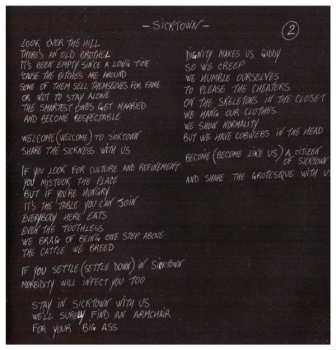 - SICKTOWN -
2
LOOK OVER THE HILL
THERE'S AN OLD BROTHEL
IT'S BEEN EMPTY SINCE A LONG TIME
'CAUSE THE BITCHES ARE AROUND
SOME OF THEM SELL THEMSELVES FOR FAME
OR NOT TO STAY ALONE
THE SMARTEST ONES GET MARRIED
AND BECOME RESPECTABLE
WELCOME (WELCOME) TO SICKTOWN
SHARE THE SICKNESS WITH US
IF YOU LOOK FOR CULTURE AND REFINEMENT
YOU MISTOOK THE PLACE
BUT IF YOU'RE HUNGRY
IT'S THE TABLE YOU CAN JOIN
EVERYBODY HERE EATS
EVEN THE TOOTHLESS
WE BRAG OF BEING ONE STEP ABOVE
THE CATTLE WE BREED
IF YOU SETTLE (SETTLE DOWN) IN SICKTOWN
MORBIDITY WILL INFECT YOU TOO
STAY IN SICKTOWN WITH US
WE'LL SURELY FIND AN ARMCHAIR
FOR YOUR BIG ASS
DIGNITY MAKES US GIDDY
SO WE CREEP
WE HUMBLE OURSELVES
TO PLEASE THE CHEATERS
ON THE SKELETONS IN THE CLOSET
WE HANG OUR CLOTHES
WE SHOW NORMALITY
BUT WE HAVE COBWEBS IN THE HEAD
BECOME (BECOME LIKE US) A CITIZEN
OF SICKTOWN
AND SHARE THE GROTESQUE WITH US